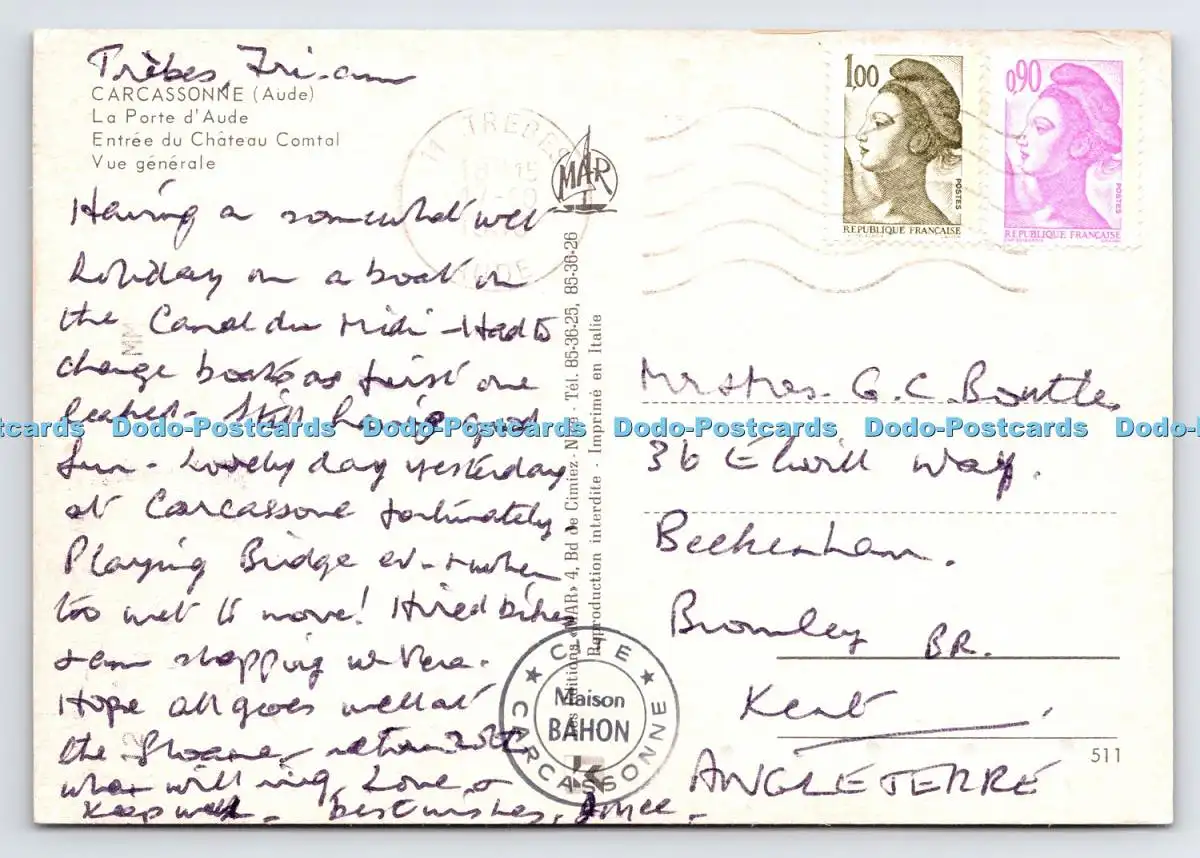 Trèbes, Fri. am
CARCASSONNE (Aude)
La Porte d'Aude
Entrée du Château Comtal
Vue générale
Having a somewhat wet
holiday on a boat on
the Canal du Midi - Had to
change boats as first one
leaked - Still having good
fun - Lovely day yesterday
at Carcassone fortunately.
Playing Bridge when
too wet to move! Hired bikes
& am shopping
Hope all goes well at
the Sloane, return
when will ring Love &
Keep well - best wishes, Joyce.
11 TREBES
AUDE
MAR
Les Editions «MAR» 4, Bd de Cimiez - Nice - Tél. 85-36-25, 85-36-26
Reproduction interdite - Imprimé en Italie
1,00
POSTES
REPUBLIQUE FRANÇAISE
0,90
POSTES
REPUBLIQUE FRANÇAISE
Mr & Mrs. G. C. Bouttle
36 Elwill Way.
Beckenham.
Bromley BR.
Kent.
ANGLETERRE
511
CITE
Maison
BAHON
CARCASSONNE
Dodo-Postcards Dodo-Postcards Dodo-Postcards Dodo-Postcards